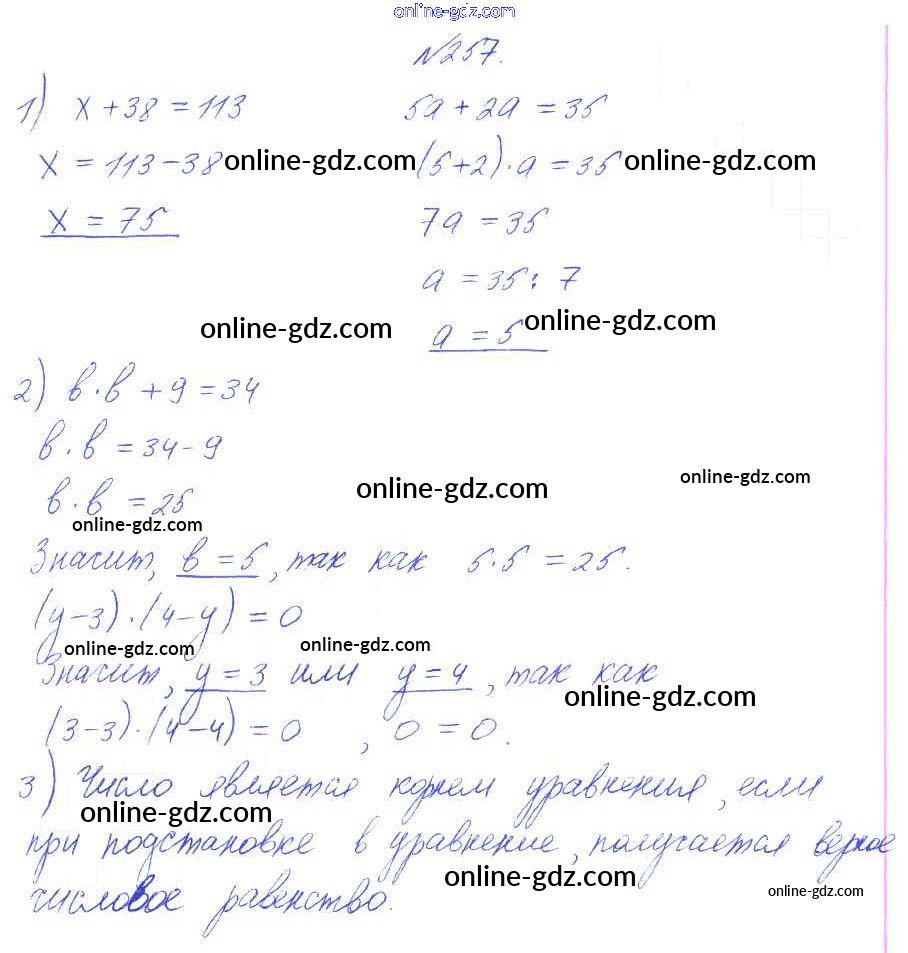 online-gdz.com
№257.
1) x + 38 = 113 5a + 2a = 35
x = 113 - 38 online-gdz.com (5+2)·a = 35 online-gdz.com
x = 75 7a = 35
a = 35 : 7
online-gdz.com a = 5 online-gdz.com
2) в·в + 9 = 34
в·в = 34 - 9
online-gdz.com
в·в = 25 online-gdz.com
online-gdz.com
Значит, в = 5, так как 5·5 = 25.
(y-3)·(4-y) = 0
online-gdz.com online-gdz.com
Значит, y = 3 или y = 4, так как
online-gdz.com
(3-3)·(4-4) = 0, 0 = 0.
3) Число является корнем уравнения, если
online-gdz.com
при подстановке в уравнение, получается верное
online-gdz.com online-gdz.com
числовое равенство.